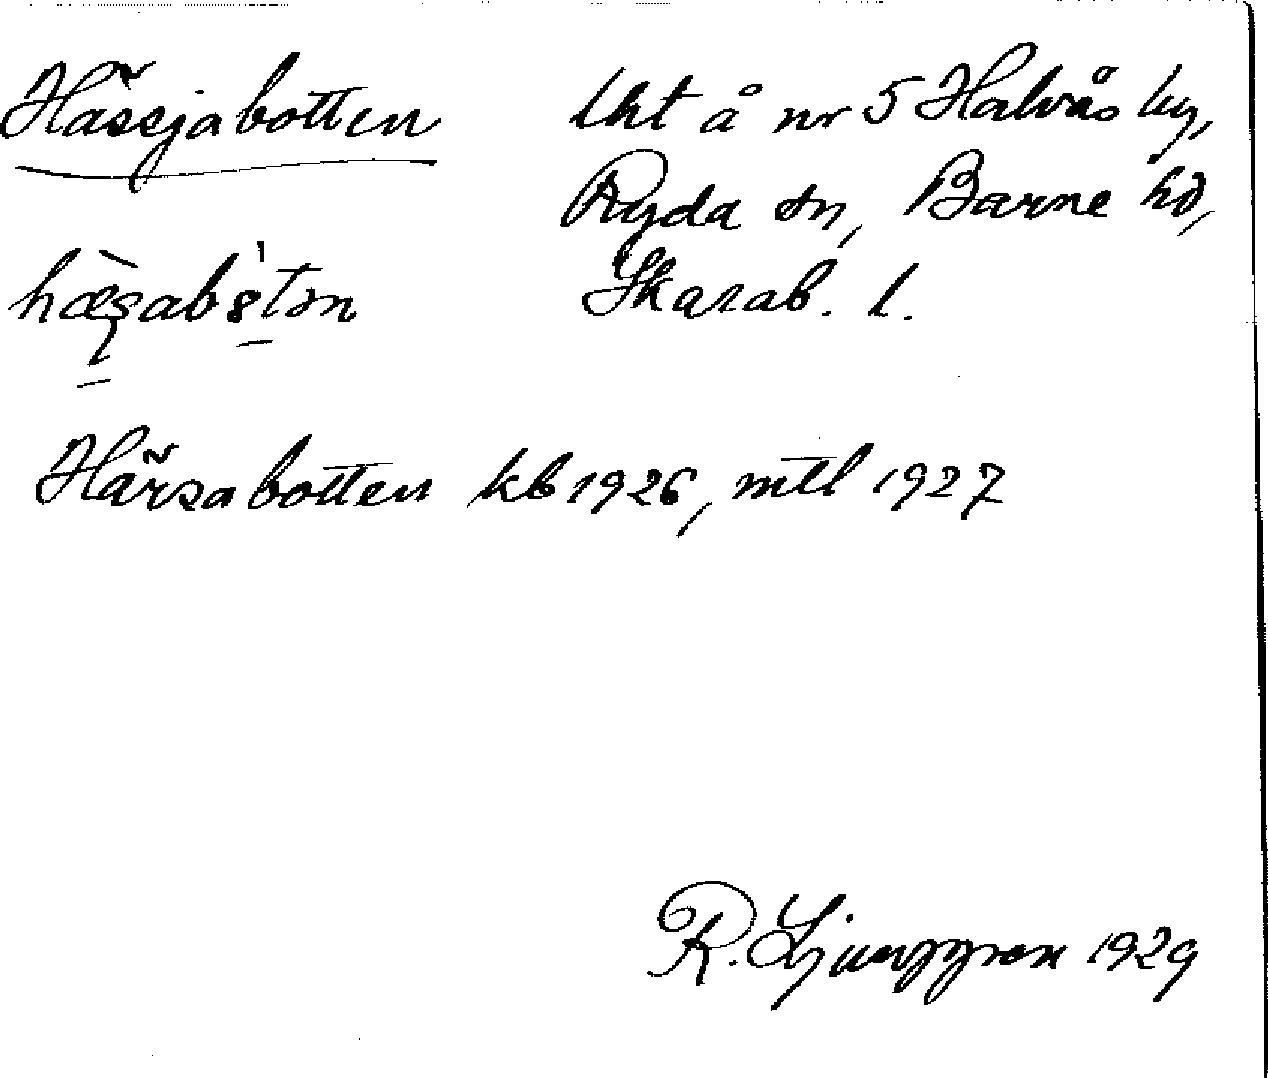 Hässjabotten
lht å nr 5 Halvås by,
Ryda sn, Barne hd,
Skarab. l.
Härsabotten kb 1926, mtl 1927
R. Ljunggren 1929